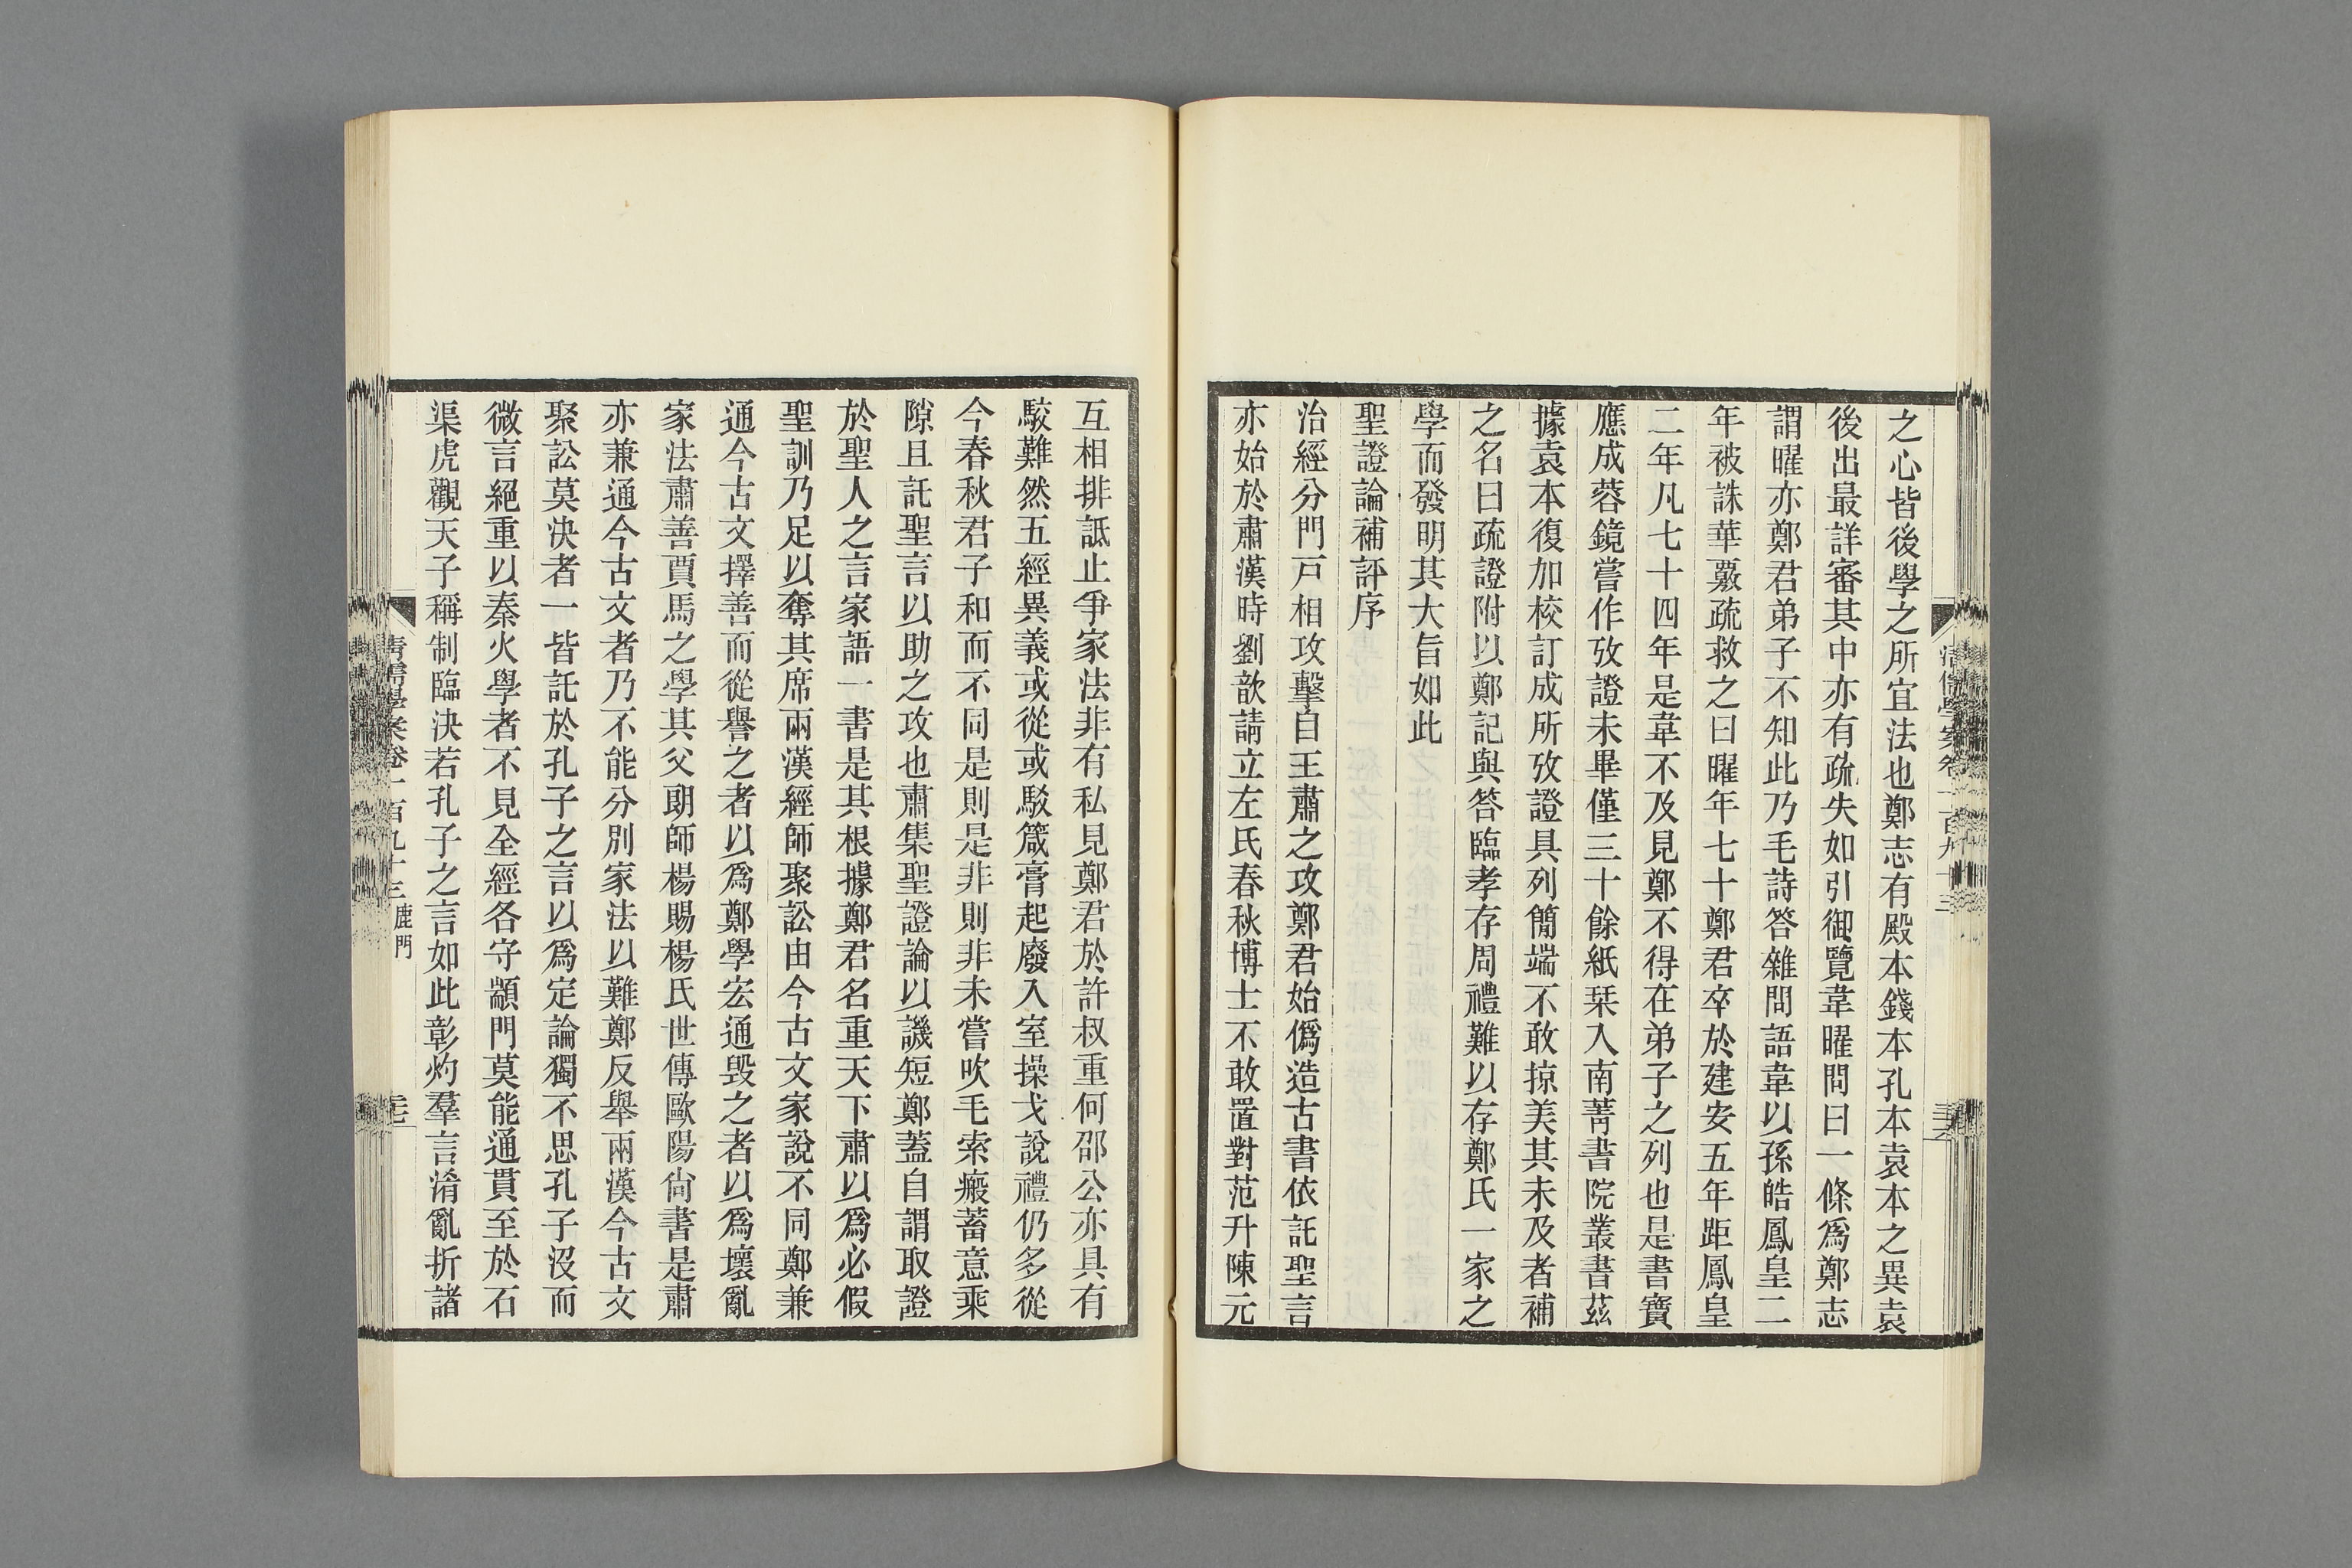 之心皆後學之所宜法也鄭志有殿本錢本孔本袁本之異袁
後出最詳審其中亦有疏失如引御覽韋曜問曰一條爲鄭志
謂曜亦鄭君弟子不知此乃毛詩答雜問語韋以孫皓鳳皇二
年被誅華覈疏救之曰曜年七十鄭君卒於建安五年距鳳皇
二年凡七十四年是韋不及見鄭不得在弟子之列也是書寶
應成蓉鏡嘗作攷證未畢僅三十餘紙栞入南菁書院叢書茲
據袁本復加校訂成所攷證具列簡端不敢掠美其未及者補
之名曰疏證附以鄭記與答臨孝存周禮難以存鄭氏一家之
學而發明其大旨如此
聖證論補評序
治經分門戸相攻擊自王肅之攻鄭君始僞造古書依託聖言
亦始於肅漢時劉歆請立左氏春秋博士不敢置對范升陳元
互相排詆止爭家法非有私見鄭君於許叔重何邵公亦具有
駮難然五經異義或從或駮箴膏起廢入室操戈說禮仍多從
今春秋君子和而不同是則是非則非未嘗吹毛索瘢蓄意乘
隙且託聖言以助之攻也肅集聖證論以譏短鄭蓋自謂取證
於聖人之言家語一書是其根據鄭君名重天下肅以爲必假
聖訓乃足以奪其席兩漢經師聚訟由今古文家說不同鄭兼
通今古文擇善而從譽之者以爲鄭學宏通毀之者以爲壞亂
家法肅善賈馬之學其父朗師楊賜楊氏世傳歐陽尙書是肅
亦兼通今古文者乃不能分別家法以難鄭反舉兩漢今古文
聚訟莫決者一皆託於孔子之言以爲定論獨不思孔子沒而
微言絕重以秦火學者不見全經各守顓門莫能通貫至於石
渠虎觀天子稱制臨決若孔子之言如此彰灼羣言淆亂折諸
清儒學案卷一百九十三 鹿門